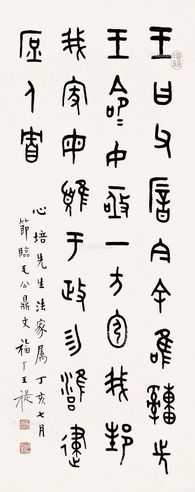 王曰父㕯今余唯䌛先
王命=女亟一方我邦
我家女于政勿雝逮
庶人
心培先生法家属丁亥七月
節臨毛公鼎文福厂王禔